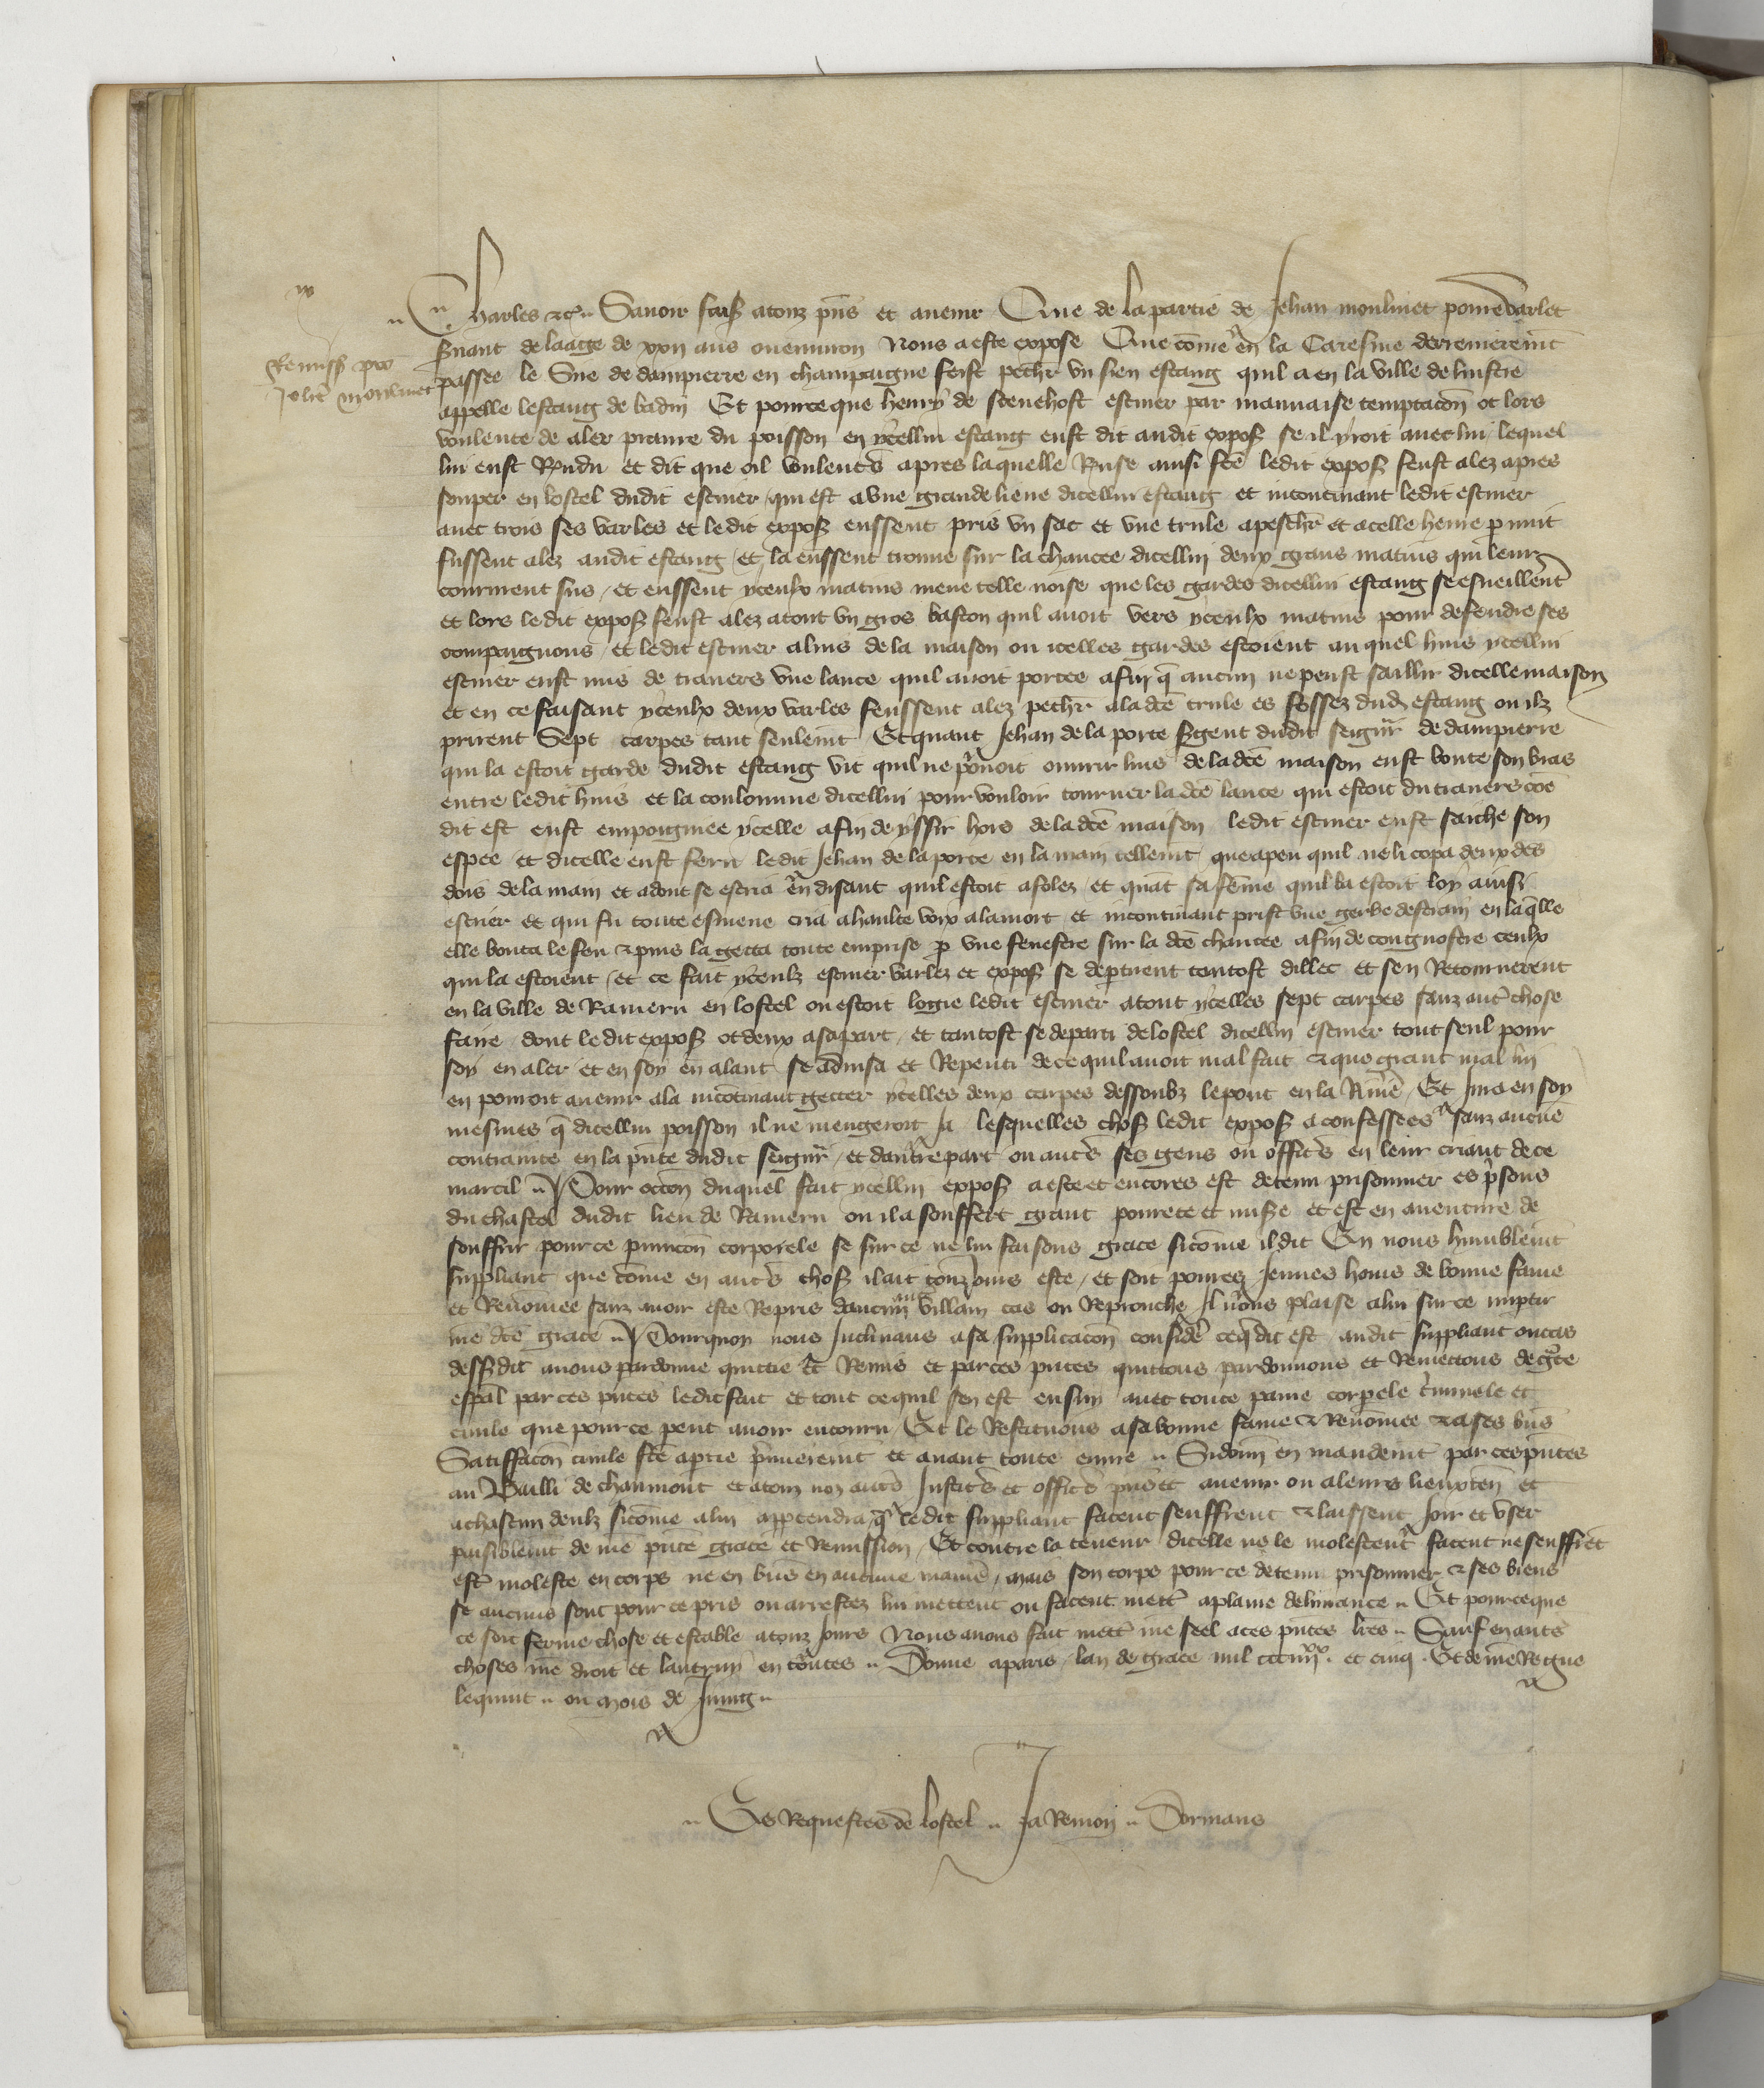 Charles etc. Savoir fais̄ a touz p̄ns et avenir Que de la partie de Jehan moulinet povre varlet
s̄vant de laage de xxij ans ou environ Nous a este expose Que cōme en la Caresme derrenierem̄t
Remiss̄ pro
Joh̄e moulinet
passee le Sire de dampierre en champaigne feist pesch̄r un sien estang quil a en la ville de luistre
appelle lestang de badin Et pource que henry de escuier par mauvaise temptacōn ot lors
voulente de aler pranre du poisson en ycellui estang eust dit audit expos̄ se il yroit avec lui lequel
lui eust R̄ndu et dit que oil voulent̄s apres laquelle R̄nse ainsi fcē ledit expos̄ feust alez apres
souper en lostel dudit escuier qui est a une grande lieue dicellui estang et incontinant ledit escuier
avec trois ses varles et ledit expos̄ eussent pris un sac et une trule a peschr̄ et a celle heure p nuit
fussent alez audit estang et la eussent trouve sur la chaucee dicellui deux grans matins qui leur
coururent sus et eussent yceulx matins mene telle noise que les gardes dicellui estang se esveillēnt
et lors ledit expos̄ feust alez a tout un gros baston quil avoit vers yceulx matins pour defendre ses
compaignons et ledit escuier a luis de la maison ou icelles gardes estoient au quel huis ycellui
escuier eust mis de travers une lance quil avoit portee afin q̄ aucun ne peust saillir dicelle maison
et en ce faisant yceulx deux varles feussent alez peschr a la dcē trule es fossez dud estang ou ilz
prirent Sept carpes tant seulem̄t Et quant Jehan de la porte s̄gent dudit seign̄r de dampierre
qui la estoit garde dudit estang vit quil ne povoit ouvrir luis de la dcē maison eust boute son bras
entre ledit huis et la coulomne dicellui pour vouloir tourner la dcē lance qui estoit du travers cōe
dit est eust empoignee ycelle afin de yssir hors de la dcē maison ledit escuier eust saiche son
espee et dicelle eust feru ledit Jehan de la porte en la main tellem̄t que a peu quil ne li copa deux des
dois de la main et adont se escria en disant quil estoit afolez et quāt sa fēme qui la estoit loy ainsi
escrier et qui fu toute esmeue cria a haulte voix a la mort et incontinant prist une gerbe destrain en laq̄lle
elle bouta le feu et puis la getta toute emprise p une fenestre sur la dcē chaucee afin de congnostre ceulx
qui la estoient et ce fait yceulx escuier varlez et expos̄ se deptirent tantost dillec et sen Retournerent
en la ville de Rameru en lostel ou estoit logie ledit escuier a tout ycelles sept carpes sanz aut̄ chose
faire dont ledit expos̄ ot deux a sa part et tantost se departi de lostel dicellui escuier tout seul pour
soy en aler et en soy en alant se advisa et Repenti de ce quil avoit mal fait et que grant mal lui
en pourroit avenir ala incōtinant getter ycelles deux carpes dessoubz le pont en la Riv̄e Et Jura en soy
mesmes q̄ dicellui poisson il ne mengeroit Ja lesquelles chos̄ ledit expos̄ a confessees sanz aucūe
contrainte en la p̄nce dudit seign̄r et dautre part ou aut̄s ses gens ou offic̄s en leur criant de ce
marcil Pour occōn duquel fait ycellui expos̄ a este et encores est detenu prisonnier es p̄sons
du chastel dudit lieu de Rameru ou il a souffert grant povrete et mis̄e et est en aventure de
souffrir pour ce punicōn corporele se sur ce ne lui faisons grace sicōme il dit En nous humblem̄t
suppliant que cōme en aut̄s chos̄ il ait touz Jours este et soit povres Jeunes homs de bonne fame
et Renōmee sanz avoir este Repris daucun villain cas ou Reprouche Il nous plaise a lui sur ce impartir
nre dcē grace Pourquoy nous Inclinans a sa supplicacōn considē ce q̄ dit est audit suppliant ou cas
dessusdit avons pardonne quictie et Remis et par ces p̄ntes quittons pardonnons et Remettons de gr̄ce
esp̄al par ces p̄ntes ledit fait et tout ce quil sen est ensuy avec toute paine corpele c̄minele et
civile que pour ce peut avoir encouru Et le Restituons a sa bonne fame et Renōmee et a ses biēs
Satiffacōn civile fcē a ptie p̄mierem̄t et avant toute euvre Si donn̄ en mandem̄t par ces p̄ntes
au Bailli de chaumont et a touz noz aut̄s Justic̄s et offic̄s p̄ns et avenir ou a leurs lieuxten̄ et
a chascun deulx sicōme a lui apptendra q̄ ledit suppliant facent seuffrent et laissent Joir et user
paisiblem̄t de nr̄e p̄nte grace et Remission Et contre la teneur dicelle ne le molestent facent ne seuffrēt
est̄ moleste en corps ne en biēs en aucune manīe mais son corps pour ce detenu prisonnier et ses biens
se aucuns sont pour ce pris ou arrestez lui mettent ou facent mett̄ a plaine delivrance Et pource que
ce soit ferme chose et estable a touz Jours Nous avons fait mett̄ nr̄e seel a ces p̄ntes lr̄es Sauf en aut̄s
choses nr̄e droit et lautruy en toutes Donne a paris lan de grace mil ccc iiij xx et cinq Et de nr̄e Regne
le quint ou mois de Juing
Es Requestes de lostel Ja Remon Dormans